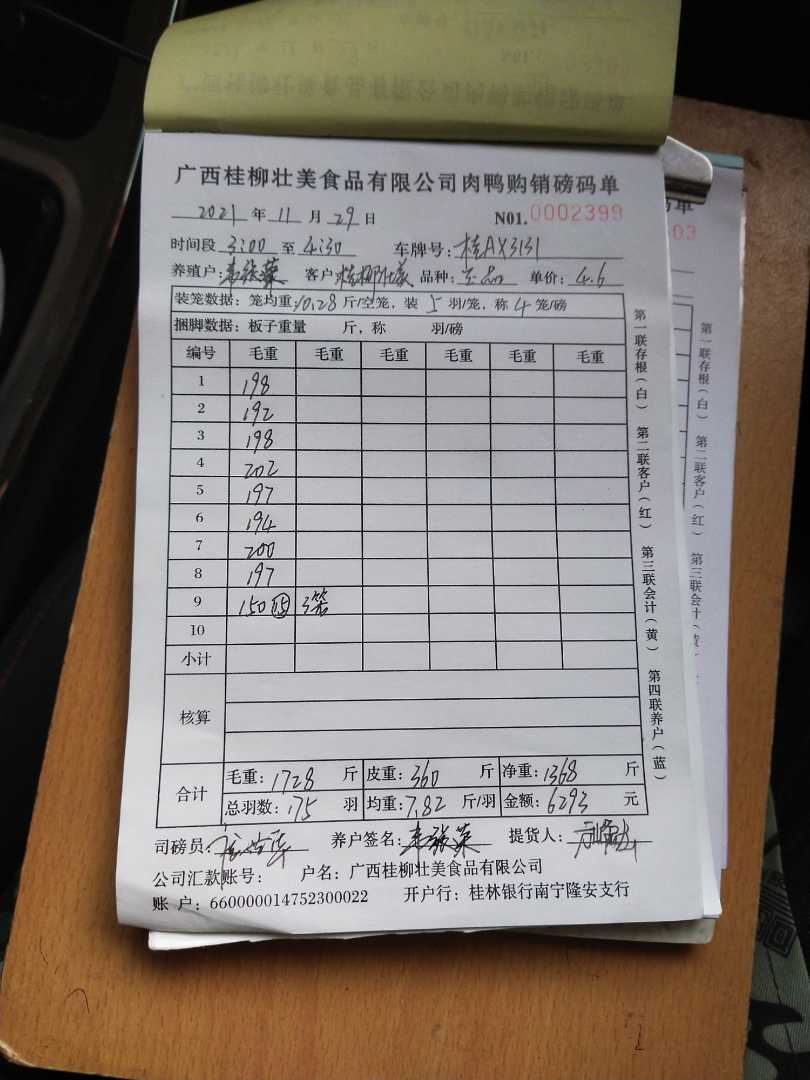 广西桂柳壮美食品有限公司肉鸭购销磅码单
2021 年 11 月 29 日 N01.0002399
时间段 3:00 至 4:30 车牌号: 桂AX3131
养殖户: 客户 桂柳壮美 品种: 单价: 4.6
装笼数据: 笼均重: 10.28 斤/空笼, 装 5 羽/笼, 称 4 笼/磅
捆脚数据: 板子重量 斤, 称 羽/磅
编号 毛重 毛重 毛重 毛重 毛重 毛重
1 198
2 192
3 198
4 202
5 197
6 194
7 200
8 197
9 150 15 3笼
10
小计
核算
合计
毛重: 1728 斤 皮重: 360 斤 净重: 1368 斤
总羽数: 175 羽 均重: 7.82 斤/羽 金额: 6293 元
司磅员: 养户签名: 提货人:
公司汇款账号: 户名: 广西桂柳壮美食品有限公司
账 户: 660000014752300022 开户行: 桂林银行南宁隆安支行
第一联存根(白) 第二联客户(红) 第三联会计(黄) 第四联养户(蓝)
码单
03
第一联存根(白) 第二联客户(红) 第三联会计(黄)